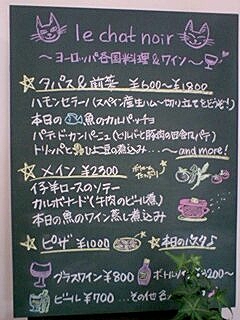 le chat noir
〜ヨーロッパ各国料理&ワイン〜
タパス&前菜 ¥600〜¥1800
ハモンセラーノ(スペイン産生ハム〜切り立てをどうぞ!)
本日の魚のカルパッチョ
パテ・ド・カンパーニュ(とりレバと豚肉の田舎風パテ)
トリッパとひよこ豆の煮込み…〜and more!
メイン ¥2300
仔羊ロースのソテー
カルボナード(牛肉のビール煮)
本日の魚のワイン蒸し煮込み
ピザ ¥1000 本日のパスタ♪
グラスワイン¥800 ボトル
ビール¥700 …その他